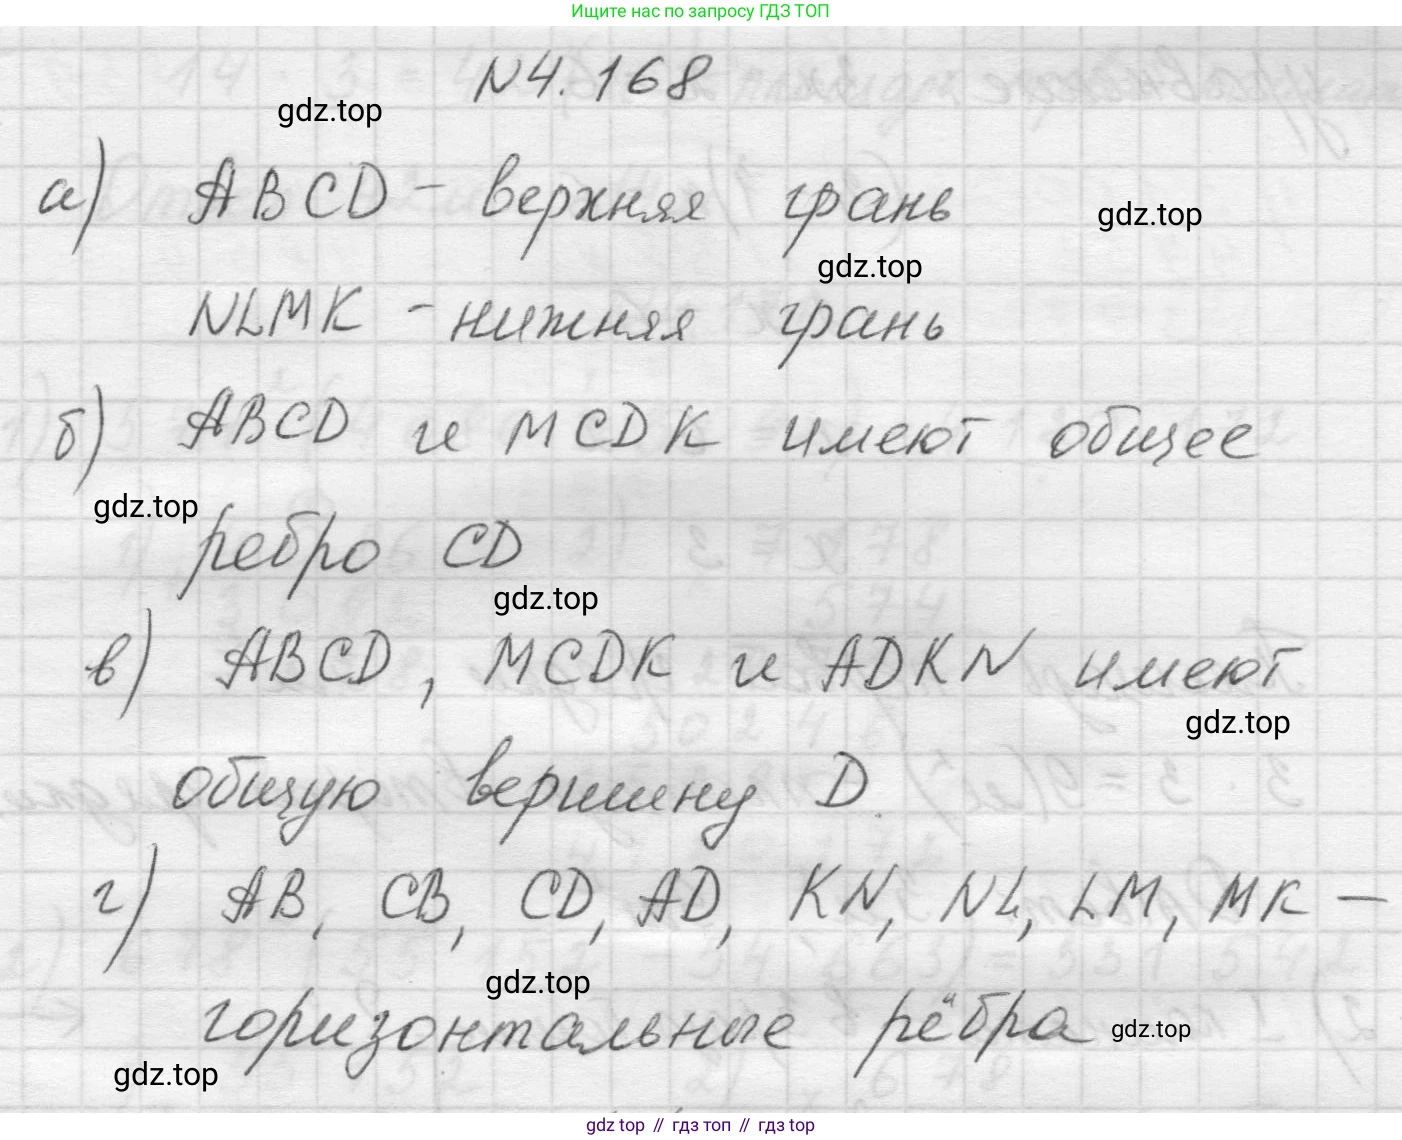 Ищите нас по запросу ГДЗ ТОП
N4.168
gdz.top
а) ABCD - верхняя грань
gdz.top
gdz.top
NLMK - нижняя грань
б) ABCD и MCDK имеют общее
gdz.top
ребро CD
gdz.top
в) ABCD, MCDK и ADKN имеют
gdz.top
общую вершину D
г) AB, CB, CD, AD, KN, NL, LM, MK —
gdz.top
горизонтальные рёбра
gdz.top
gdz.top
gdz top // гдз топ // gdz top